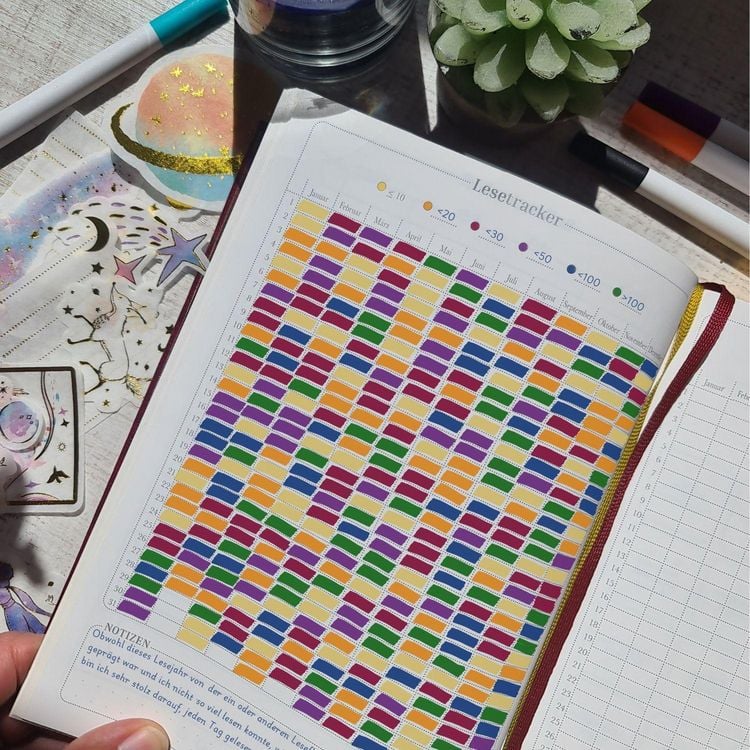 Lesetracker
≤ 10
<20
<30
<50
<100
>100
Januar Februar März April Mai Juni Juli August September Oktober November
1
2
3
4
5
6
7
8
9
10
11
12
13
14
15
16
17
18
19
20
21
22
23
24
25
26
27
28
29
30
31
NOTIZEN
Obwohl dieses Lesejahr von der ein oder anderen
geprägt war und ich nicht so viel lesen konnte,
bin ich sehr stolz darauf, jeden Tag
Januar